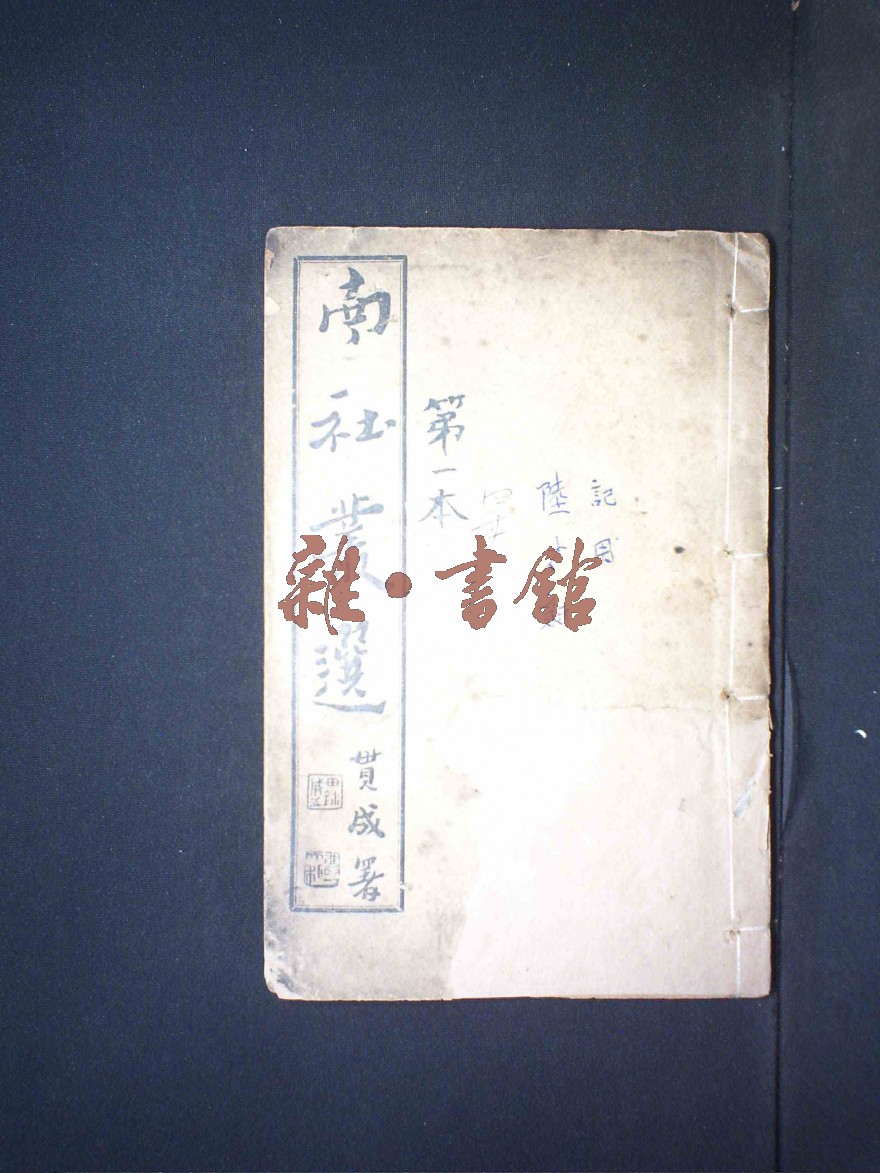 南社叢選
貫成署
第一本
記周
陸
雜·書館